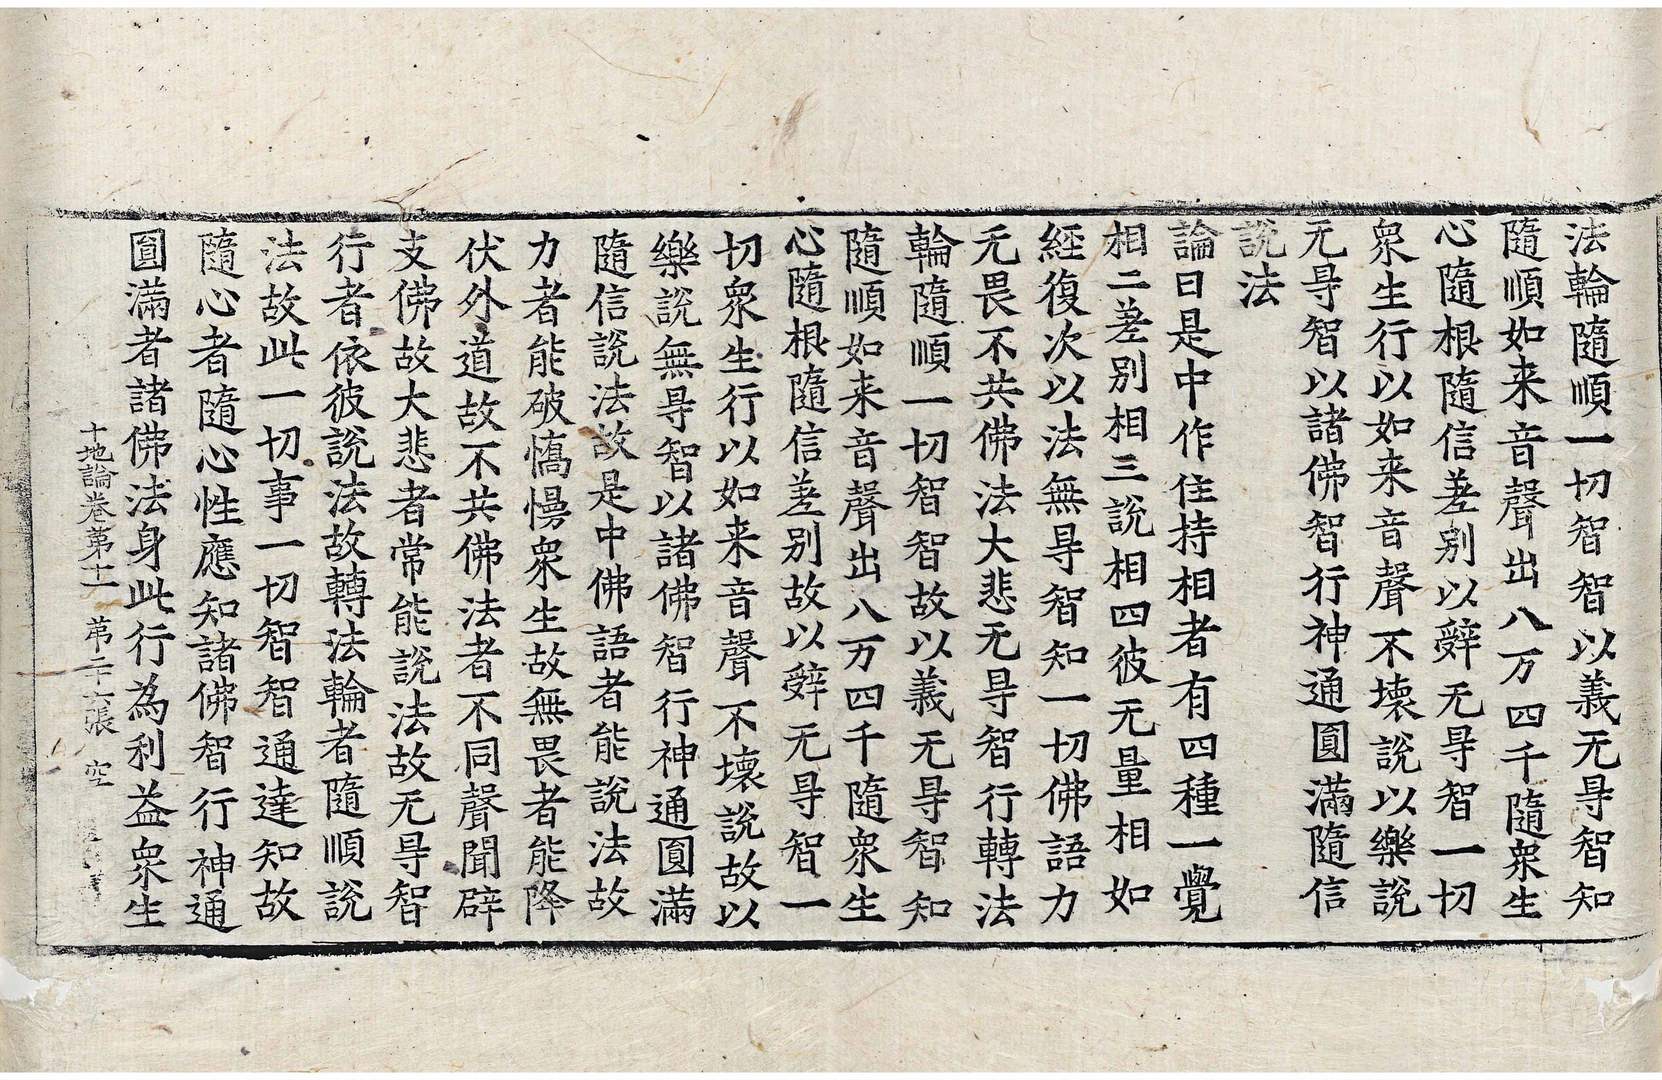 法輪隨順一切智智以義无㝵智知
隨順如来音聲出八万四千隨衆生
心隨根隨信差別以辤无㝵智一切
衆生行以如来音聲不壊說以樂說
无㝵智以諸佛智行神通圓滿隨信
說法
論曰是中作住持相者有四種一覺
相二差別相三說相四彼无量相如
經復次以法無㝵智知一切佛語力
无畏不共佛法大悲无㝵智行轉法
輪隨順一切智智故以義无㝵智知
隨順如来音聲出八万四千隨衆生
心隨根隨信差別故以辤无㝵智一
切衆生行以如来音聲不壊說故以
樂說無㝵智以諸佛智行神通圓滿
隨信說法故是中佛語者能說法故
力者能破憍慢衆生故無畏者能降
伏外道故不共佛法者不同聲聞辟
支佛故大悲者常能說法故无㝵智
行者依彼說法故轉法輪者隨順說
法故此一切事一切智智通達知故
隨心者隨心性應知諸佛智行神通
圓滿者諸佛法身此行為利益衆生
十地論卷苐十一 苐二十六張 空